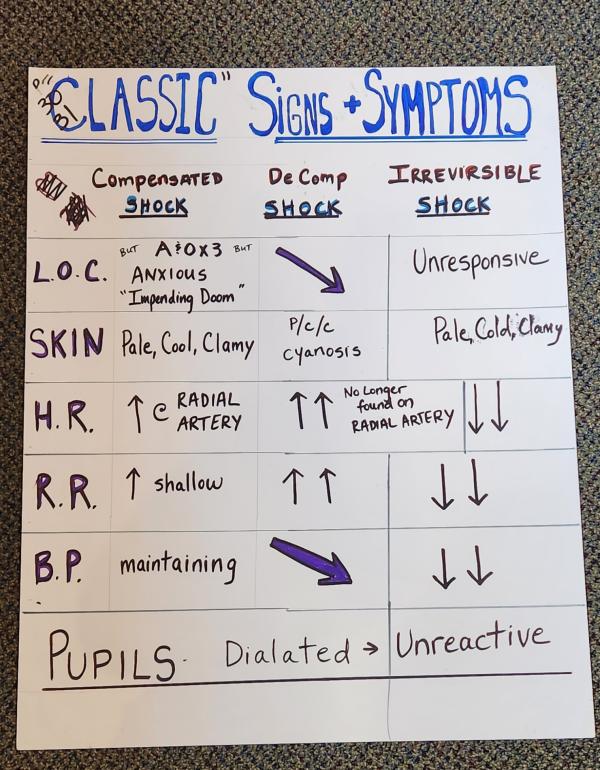 P"
30
31
"CLASSIC" SiGNS + SYMPTOMS
COMPENSATED SHOCK
De Comp SHOCK
IRREVIRSIBLE SHOCK
L.O.C.
BUT A&OX3 BUT
ANXIOUS
"Impending Doom"
Unresponsive
SKIN
Pale, Cool, Clamy
P/c/c
cyanosis
Pale, Cold, Clamy
H.R.
↑ @ RADIAL
ARTERY
↑↑ No Longer
found on
RADIAL ARTERY
↓↓
R.R.
↑ shallow
↑↑
↓↓
B.P.
maintaining
↓↓
PUPILS. Dialated → Unreactive